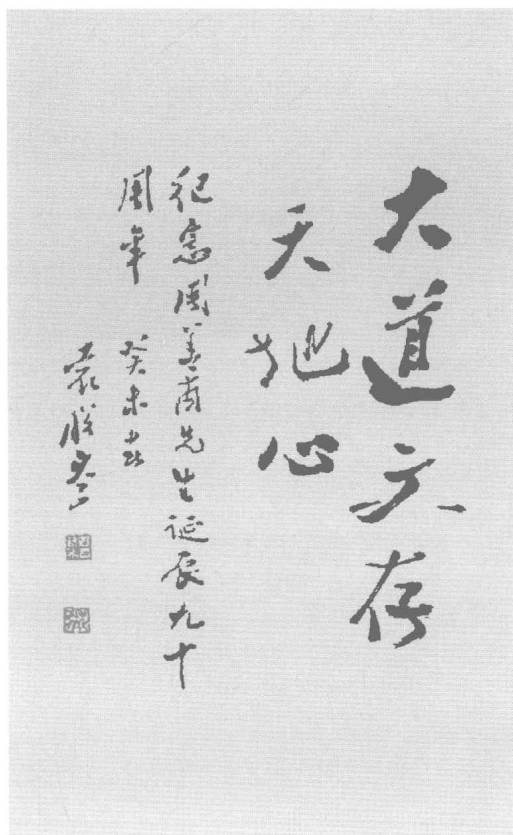 大道文存
天地心
纪念周善甫先生诞辰九十
周年 癸未
袁晓岑